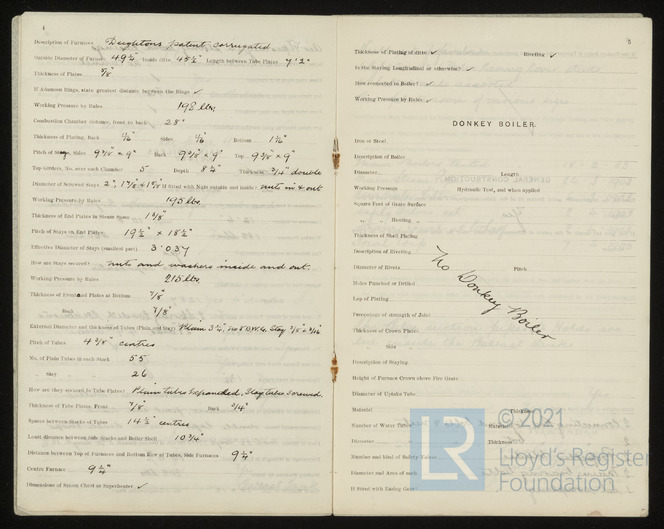 4
Description of Furnaces Deightons patent corrugated
Outside Diameter of Furnace 49¼ Inside ditto 45½" Length between Tube Plates 7'2"
Thickness of Plates
If Adamson Rings, state greatest distance between the Rings ✓
Working Pressure by Rules 198 lbs.
Combustion Chamber distance, front to back 28"
Thickness of Plating, Back Sides Bottom
Pitch of Stays, Sides 9⅜ × 9" Back 9⅜ × 9" Top 9⅜ × 9"
Top Girders, No. over each Chamber 5 Depth Thickness ¾" double
Diameter of Screwed Stays If fitted with Nuts outside and inside nuts in & out
Working Pressure by Rules 195 lbs.
Thickness of End Plates in Steam Space
Pitch of Stays in End Plates 19½" × 18½"
Effective Diameter of Stays (smallest part) 3·037
How are Stays secured? nuts and washers inside and out.
Working Pressure by Rules 215 lbs.
Thickness of Front end Plates at Bottom 7/8"
Back 7/8"
External Diameter and thickness of Tubes (Plain and Stay) Plain 3¼" No 8 B.W.G. Stay
Pitch of Tubes 4⅜" centres
No. of Plain Tubes in each Stack 55
" Stay 26
How are they secured to Tube Plates? Plain tubes Expanded, Stay tubes screwed.
Thickness of Tube Plates, Front 7/8" Back ¾"
Spaces between Stacks of Tubes 14½" centres
Least distance between Side Stacks and Boiler Shell 10¾"
Distance between Top of Furnaces and Bottom Row of Tubes, Side Furnaces 9¼"
Centre Furnace 9¼"
Dimensions of Steam Chest or Superheater ✓
5
Thickness of Plating of ditto ✓ Riveting ✓
Is the Staying Longitudinal or otherwise? ✓
How connected to Boiler? ✓
Working Pressure by Rules ✓
DONKEY BOILER.
Iron or Steel
Description of Boiler
Diameter Length
Working Pressure Hydraulic Test, and when applied
Square Feet of Grate Surface
" " Heating "
Thickness of Shell Plating
Description of Riveting
Diameter of Rivets Pitch
Holes Punched or Drilled
Lap of Plating
Percentage of strength of Joint
Thickness of Crown Plates
" Side "
No Donkey Boiler
Description of Staying
Height of Furnace Crown above Fire Grate
Diameter of Uptake Tube
Material Thickness
Number of Water Tubes Material
Diameter Thickness
Number and kind of Safety Valves
Diameter and Area of each
If fitted with Easing Gear
LR
© 2021
Lloyd's Register
Foundation